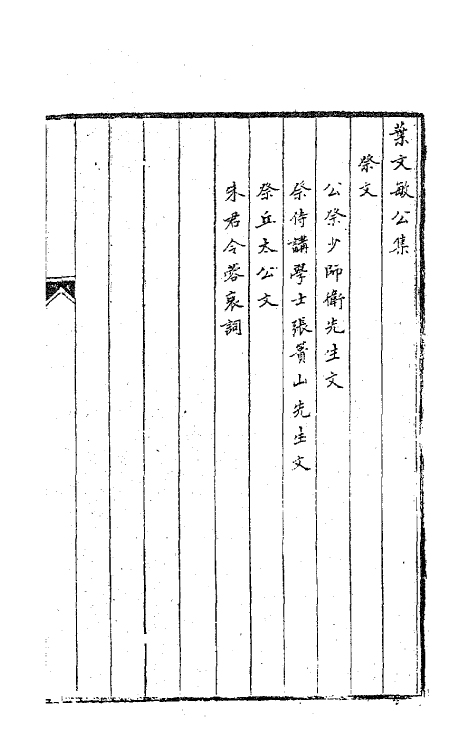 葉文敏公集
祭文
公祭少師衛先生文
祭侍講學士張蕢山先生文
祭丘太公文
朱君令蓉哀詞